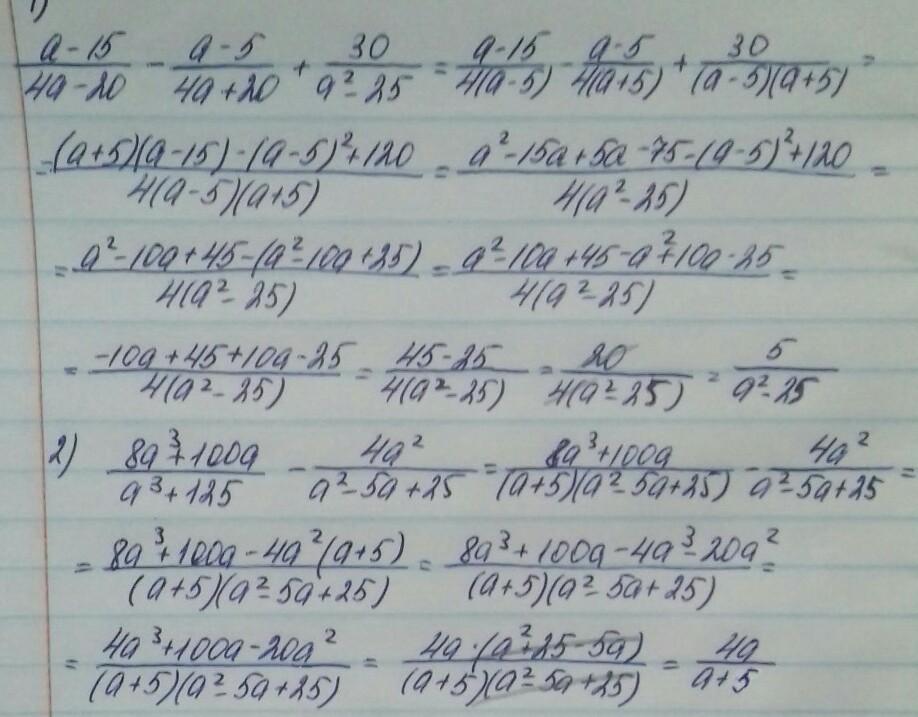 1)
(a-15)/(4a-20) - (a-5)/(4a+20) + 30/(a²-25) = (a-15)/(4(a-5)) - (a-5)/(4(a+5)) + 30/((a-5)(a+5)) =
= ((a+5)(a-15)-(a-5)²+120)/(4(a-5)(a+5)) = (a²-15a+5a-75-(a-5)²+120)/(4(a²-25)) =
= (a²-10a+45-(a²-10a+25))/(4(a²-25)) = (a²-10a+45-a²+10a-25)/(4(a²-25)) =
= (-10a+45+10a-25)/(4(a²-25)) = (45-25)/(4(a²-25)) = 20/(4(a²-25)) = 5/(a²-25)
2) (8a³+100a)/(a³+125) - 4a²/(a²-5a+25) = (8a³+100a)/((a+5)(a²-5a+25)) - 4a²/(a²-5a+25) =
= (8a³+100a-4a²(a+5))/((a+5)(a²-5a+25)) = (8a³+100a-4a³-20a²)/((a+5)(a²-5a+25)) =
= (4a³+100a-20a²)/((a+5)(a²-5a+25)) = (4a·(a²+25-5a))/((a+5)(a²-5a+25)) = 4a/(a+5)